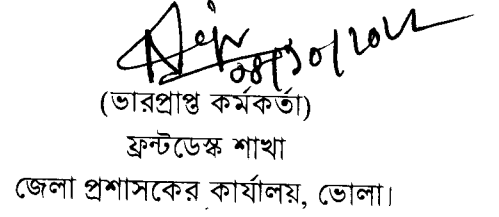 (ভারপ্রাপ্ত কর্মকর্তা)
ফ্রন্টডেস্ক শাখা
জেলা প্রশাসকের কার্যালয়, ভোলা।